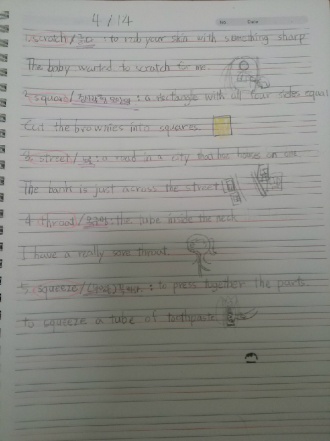 4/14
1. scratch / : to rub your skin with something sharp
The baby wanted to scratch me.
2. square / : a rectangle with all four sides equal
Cut the brownies into squares.
3. street / : a road in a city that has houses on
The bank is just across the street
4. throat / : the tube inside the neck
I have a really sore throat.
5. squeeze / : to press together the parts
to squeeze a tube of toothpaste